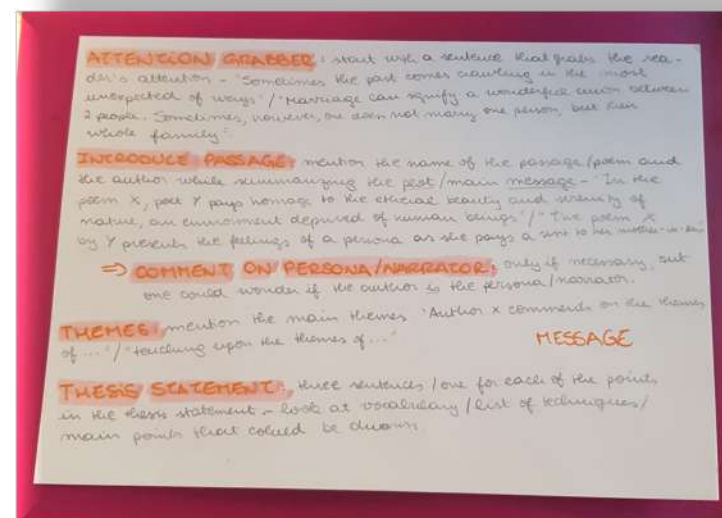 ATTENTION GRABBER: start with a sentence that grabs the rea-
der's attention - "Sometimes the past comes crawling in the most
unexpected of ways" / "Marriage can signify a wonderful union between
2 people. Sometimes, however, one does not marry one person, but their
whole family".
INTRODUCE PASSAGE: mention the name of the passage/poem and
the author while summarizing the gist/main message - "In the
poem X, poet Y pays homage to the ethereal beauty and serenity of
nature, an environment deprived of human beings" / "The poem X
by Y presents the feelings of a persona as she pays a visit to her mother-in-law
⇒ COMMENT ON PERSONA/NARRATOR: only if necessary, but
one could wonder if the author is the persona/narrator.
THEMES: mention the main themes "Author X comments on the themes
of ..." / "touching upon the themes of ..."
MESSAGE
THESIS STATEMENT: three sentences / one for each of the points
in the thesis statement - look at vocabulary / list of techniques /
main points that could be drawn.